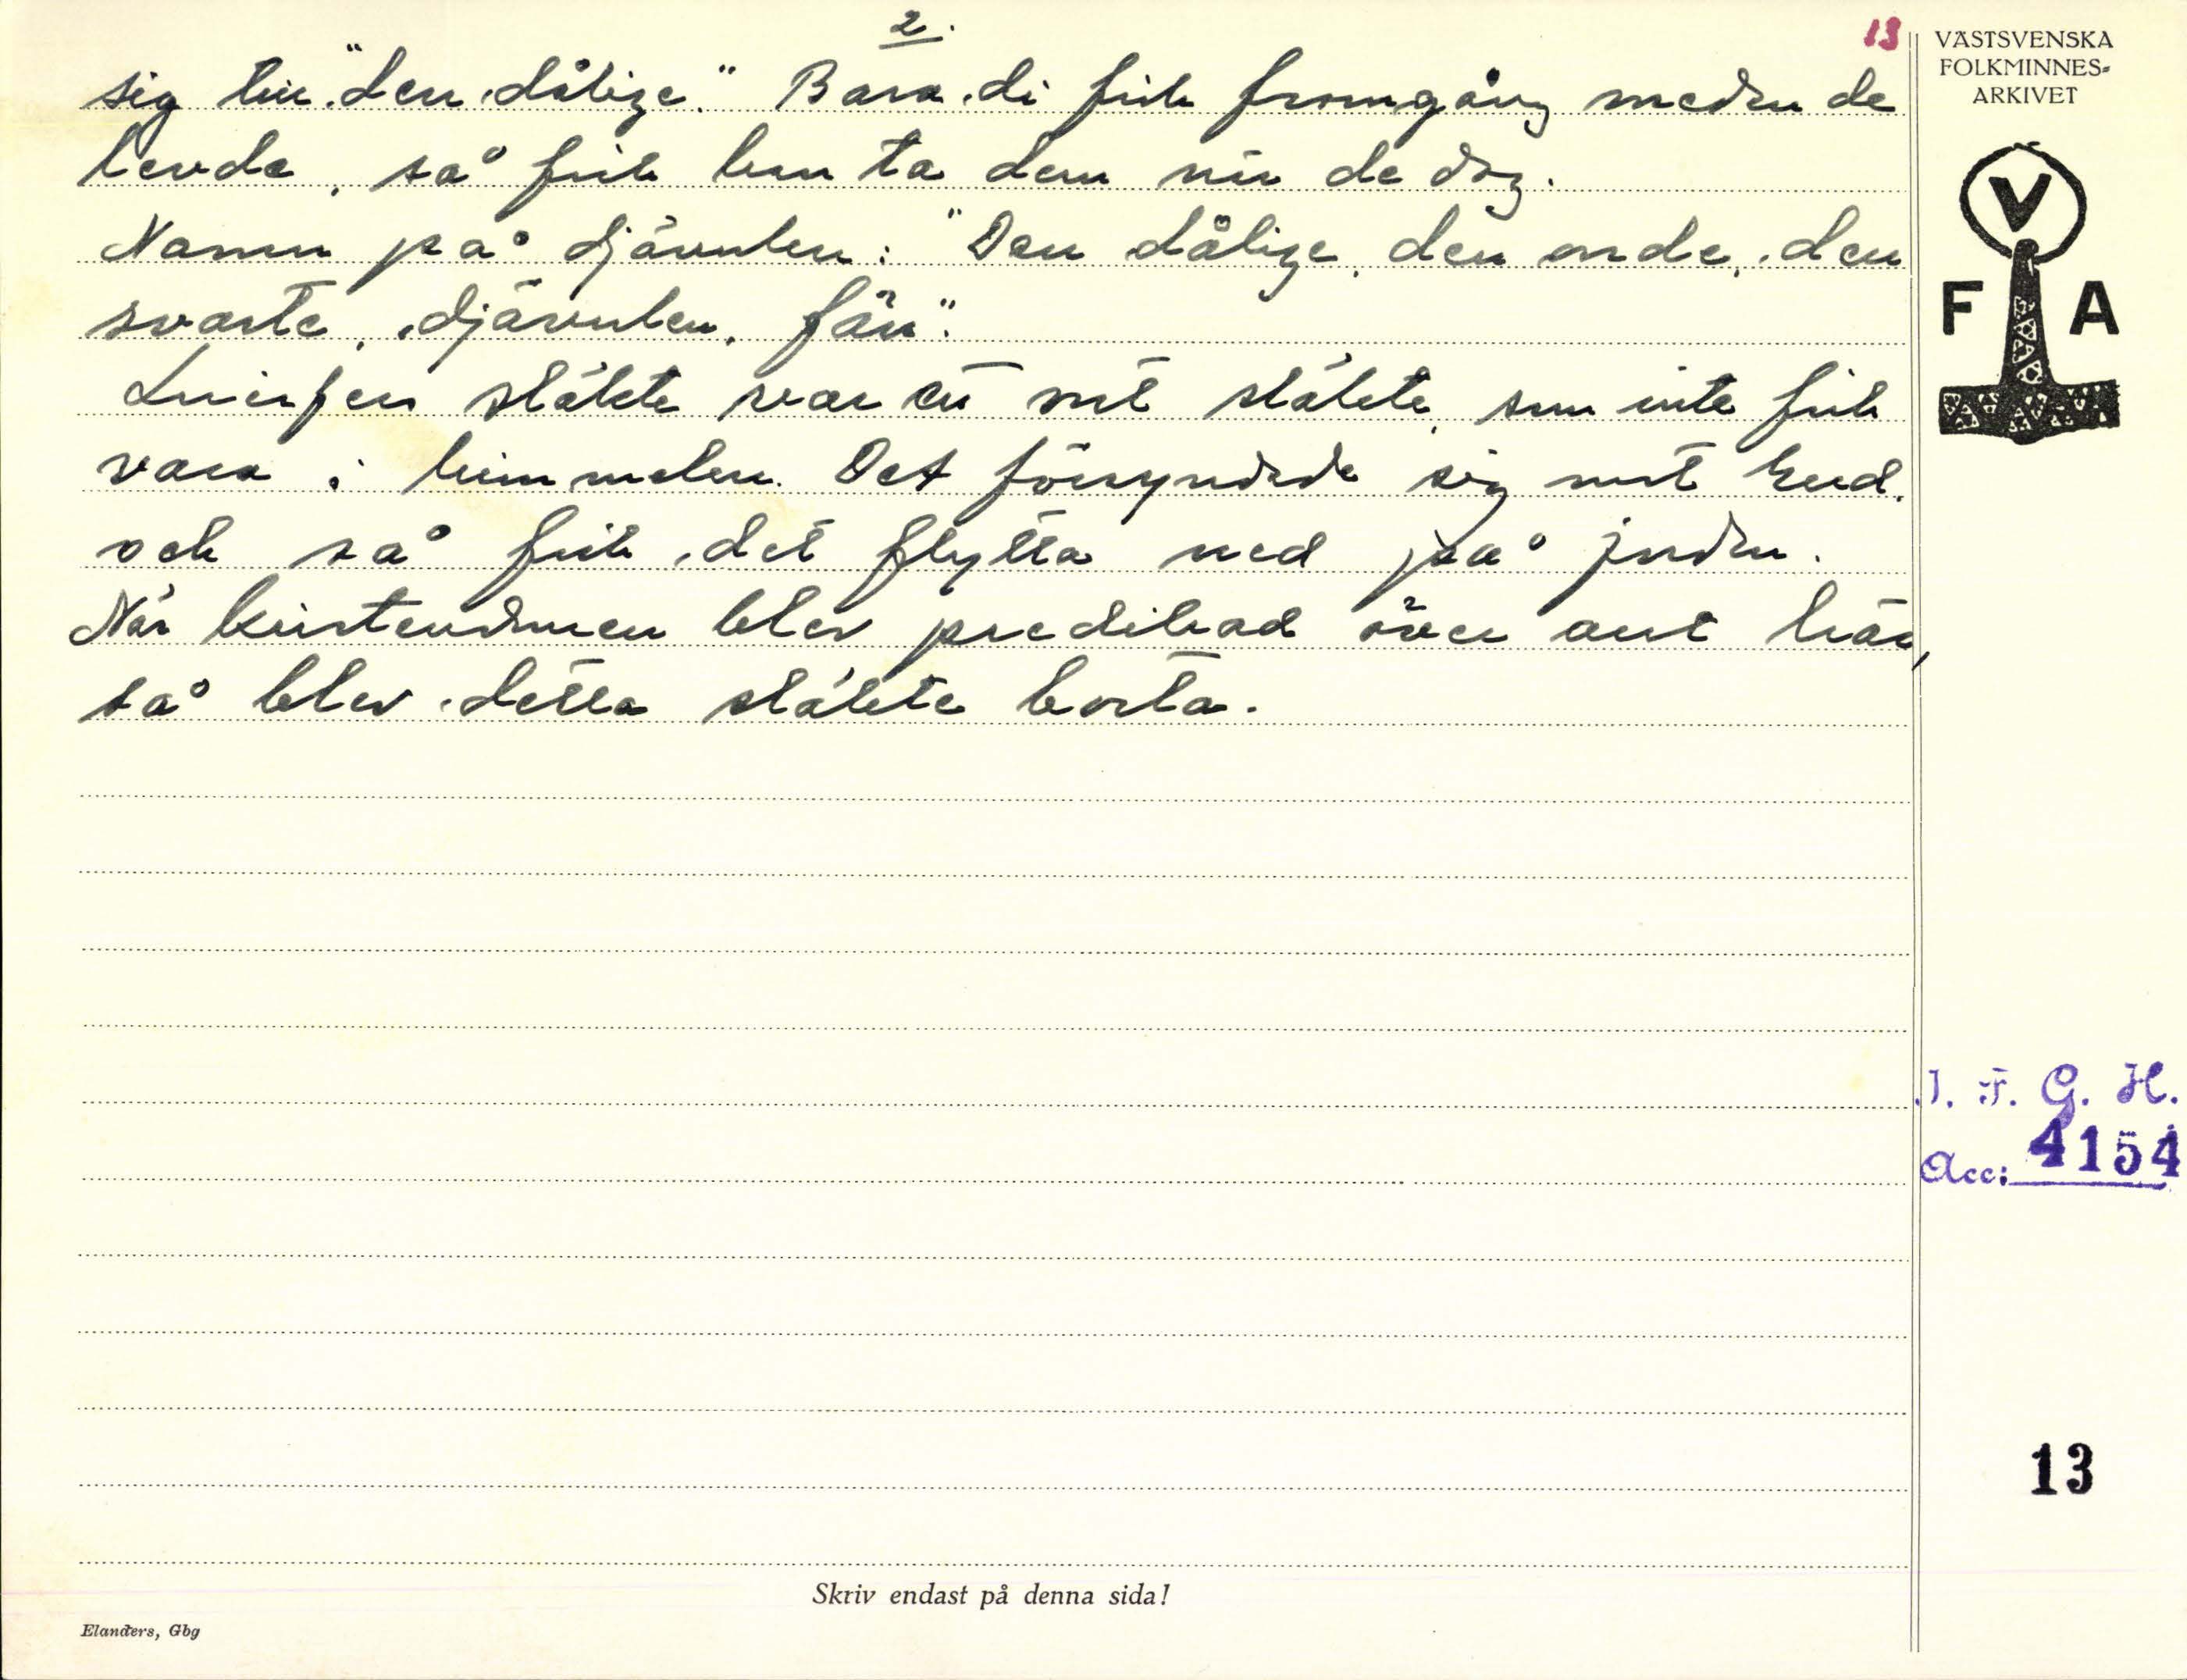 2.
13
sig till "den dålige." Bara di fick framgång medan de
levde, så fick han ta dem när de dog.
Namn på djävulen: "Den dålige, den onde, den
svarte, djävulen, fän".
släkte var ett släkte, som inte fick
vara i himmelen. Det försyndade sig mot Gud,
och så fick det flytta ned på jorden.
När kristendomen blev predikad över allt här,
så blev detta släkte borta.
Skriv endast på denna sida!
Elanders, Gbg
VÄSTSVENSKA
FOLKMINNES-
ARKIVET
V
F A
I. F. G. H.
Acc: 4154
13